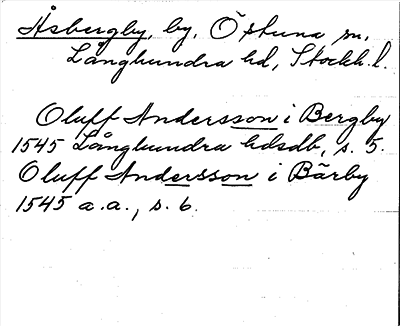 Åsbergby, by, Östuna sn,
Långhundra hd, Stockh. l.
Oluff Andersson i Bergby
1545 Långhundra hdsdb, s. 5.
Oluff Andersson i Bärby
1545 a.a., s. 6.